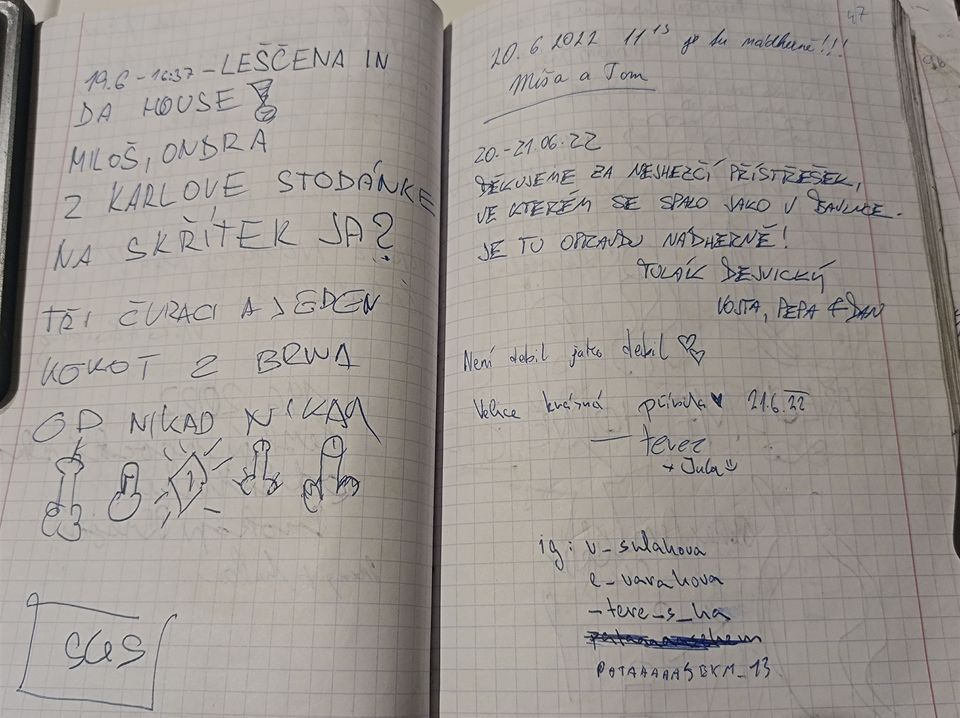 19.6 - 16:37 - LEŠČENA IN
DA HOUSE
MILOŠ, ONDRA
Z KARLOVE STODÁNKE
NA SKŘÍTEK JA?
TŘI ČURACI A JEDEN
KOKOT Z BRNA
OD NIKAD NIKAM
SUS
47
20.6 2022 11 15 je tu nádherně!!!
Míša a Tom
20.-21.06.22
DĚKUJEME ZA NEJHEZČÍ PŘÍSTŘEŠEK,
VE KTERÉM SE SPALO JAKO V BAVLNCE.
JE TU OPRAVDU NÁDHERNĚ!
TULÁK DEJVICKÝ
VOJTA, PEPA & DAN
Není debil jako debil
Velice krásná příroda ♥ 21.6.22
— terez
+ Jula
ig: v_sulakova
e_varakova
_tere_s_ha
PATAAAAASBKM_13